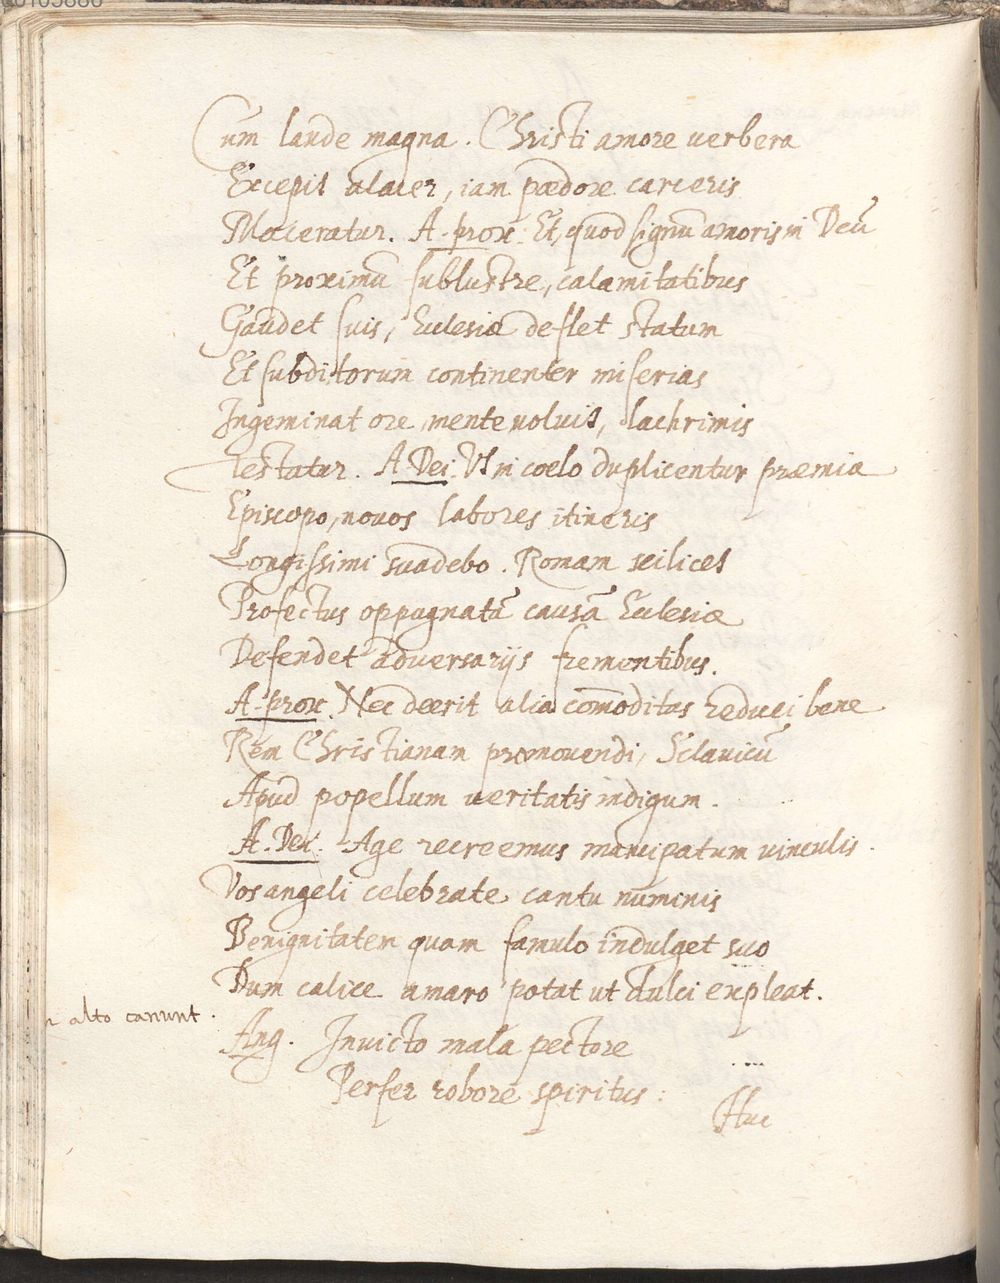 Cum laude magna. Christi amore uerbera
Excepit alacer, iam pædore carceris
Maceratur. A. prox. Et, quod signũ amoris in Deũ
Et proximũ sublustre, calamitatibus
Gaudet suis, Eclesiæ deflet statum
Et subditorum continenter miserias
Ingeminat ore, mente uoluit, lachrimis
Testatur. A. Dei. Vt in coelo duplicentur præmia
Episcopo, nouos labores itineris
Longissimi suadebo. Romam scilicet
Profectus oppugnatã causã Eclesiæ
Defendet aduersarijs frementibus.
A. prox. Nec deerit alia com̃oditas reduci bene
Rem Christianam promouendi, Sclauicũ
Apud popellum ueritatis indigum.
A. Dei. Age recreemus mancipatum uinculis.
Vos angeli celebrate cantu numinis
Benignitatem quam famulo indulget suo
Dum calice amaro potat ut dulci expleat.
n alto canunt.
Ang. Inuicto mala pectore
Perfer robore spiritus:
Huc